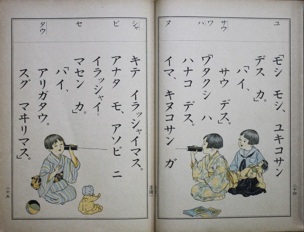 ユ
サウ
ワ
ハ
ヌ
「モシ モシ、ユキコサン
デス カ。」
「ハイ、
サウ デス。」
「ワタクシ ハ
ハナコ デス。
イマ、キヌコサン ガ
シャ
ピ
セ
タウ
キテ イラッシャイマス。
アナタ モ、アソビ ニ
イラッシャイ
マセン カ。」
「ハイ、
アリガタウ。
スグ マヰリマス。」